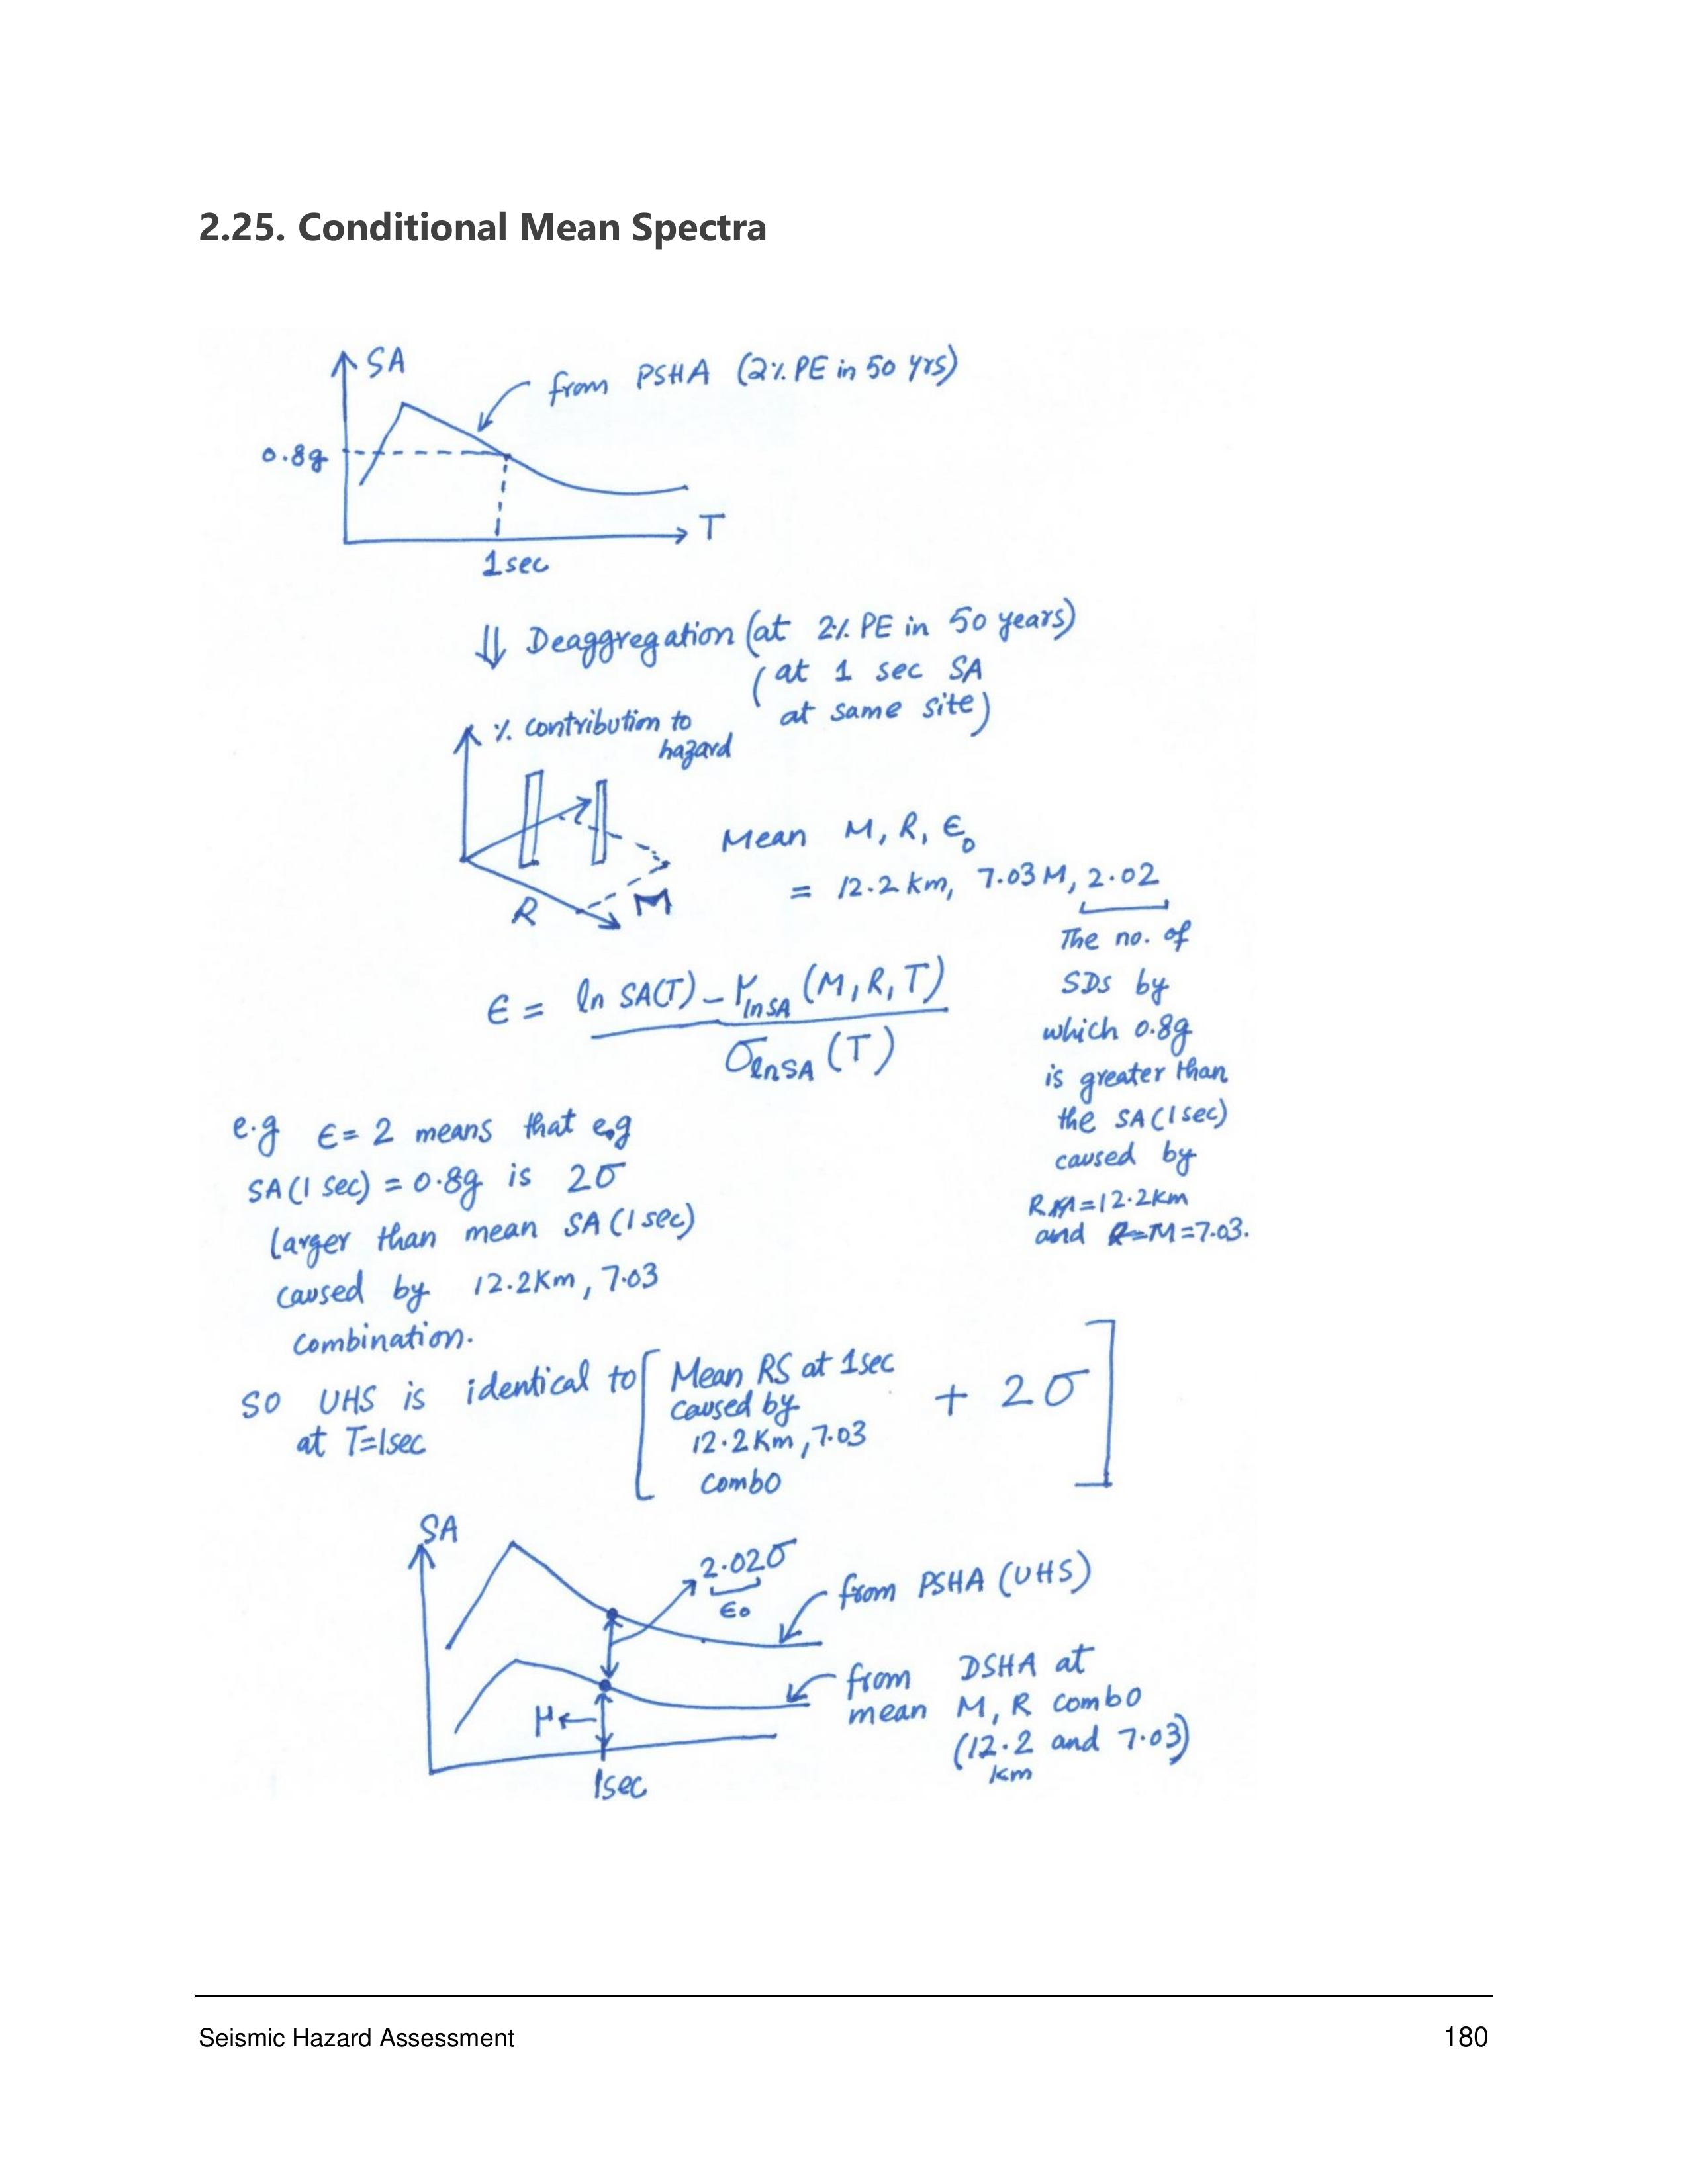 2.25. Conditional Mean Spectra
SA
from PSHA (2% PE in 50 yrs)
0.8g
T
1 sec
⇓ Deaggregation (at 2% PE in 50 years)
(at 1 sec SA
at same site)
% contribution to
hazard
R
M
Mean M, R, ϵ₀
= 12.2 km, 7.03 M, 2.02
The no. of
SDs by
which 0.8g
is greater than
the SA (1 sec)
caused by
R = 12.2 km
and M = 7.03.
ϵ = (ln SA(T) - μ_lnSA (M, R, T)) / σ_lnSA (T)
e.g ϵ = 2 means that e.g
SA (1 sec) = 0.8g is 2σ
larger than mean SA (1 sec)
caused by 12.2 Km, 7.03
combination.
SO UHS is identical to [Mean RS at 1 sec
at T=1sec
caused by
12.2 Km, 7.03
combo
+ 2σ]
SA
2.02σ
ϵ₀
from PSHA (UHS)
from DSHA at
mean M, R combo
(12.2 and 7.03)
km
μ
1sec
Seismic Hazard Assessment
180